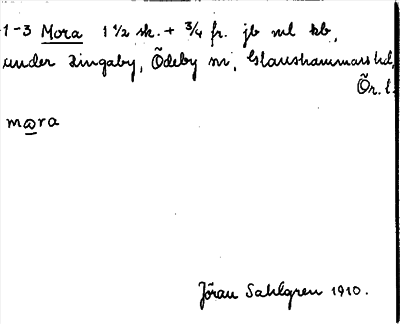 1-3 Mora 1 1/2 sk. + 3/4 fr. jb ml kb,
under Zingaby, Ödeby sn, Glanshammars hd,
Ör. l.
mωra
Jöran Sahlgren 1910.